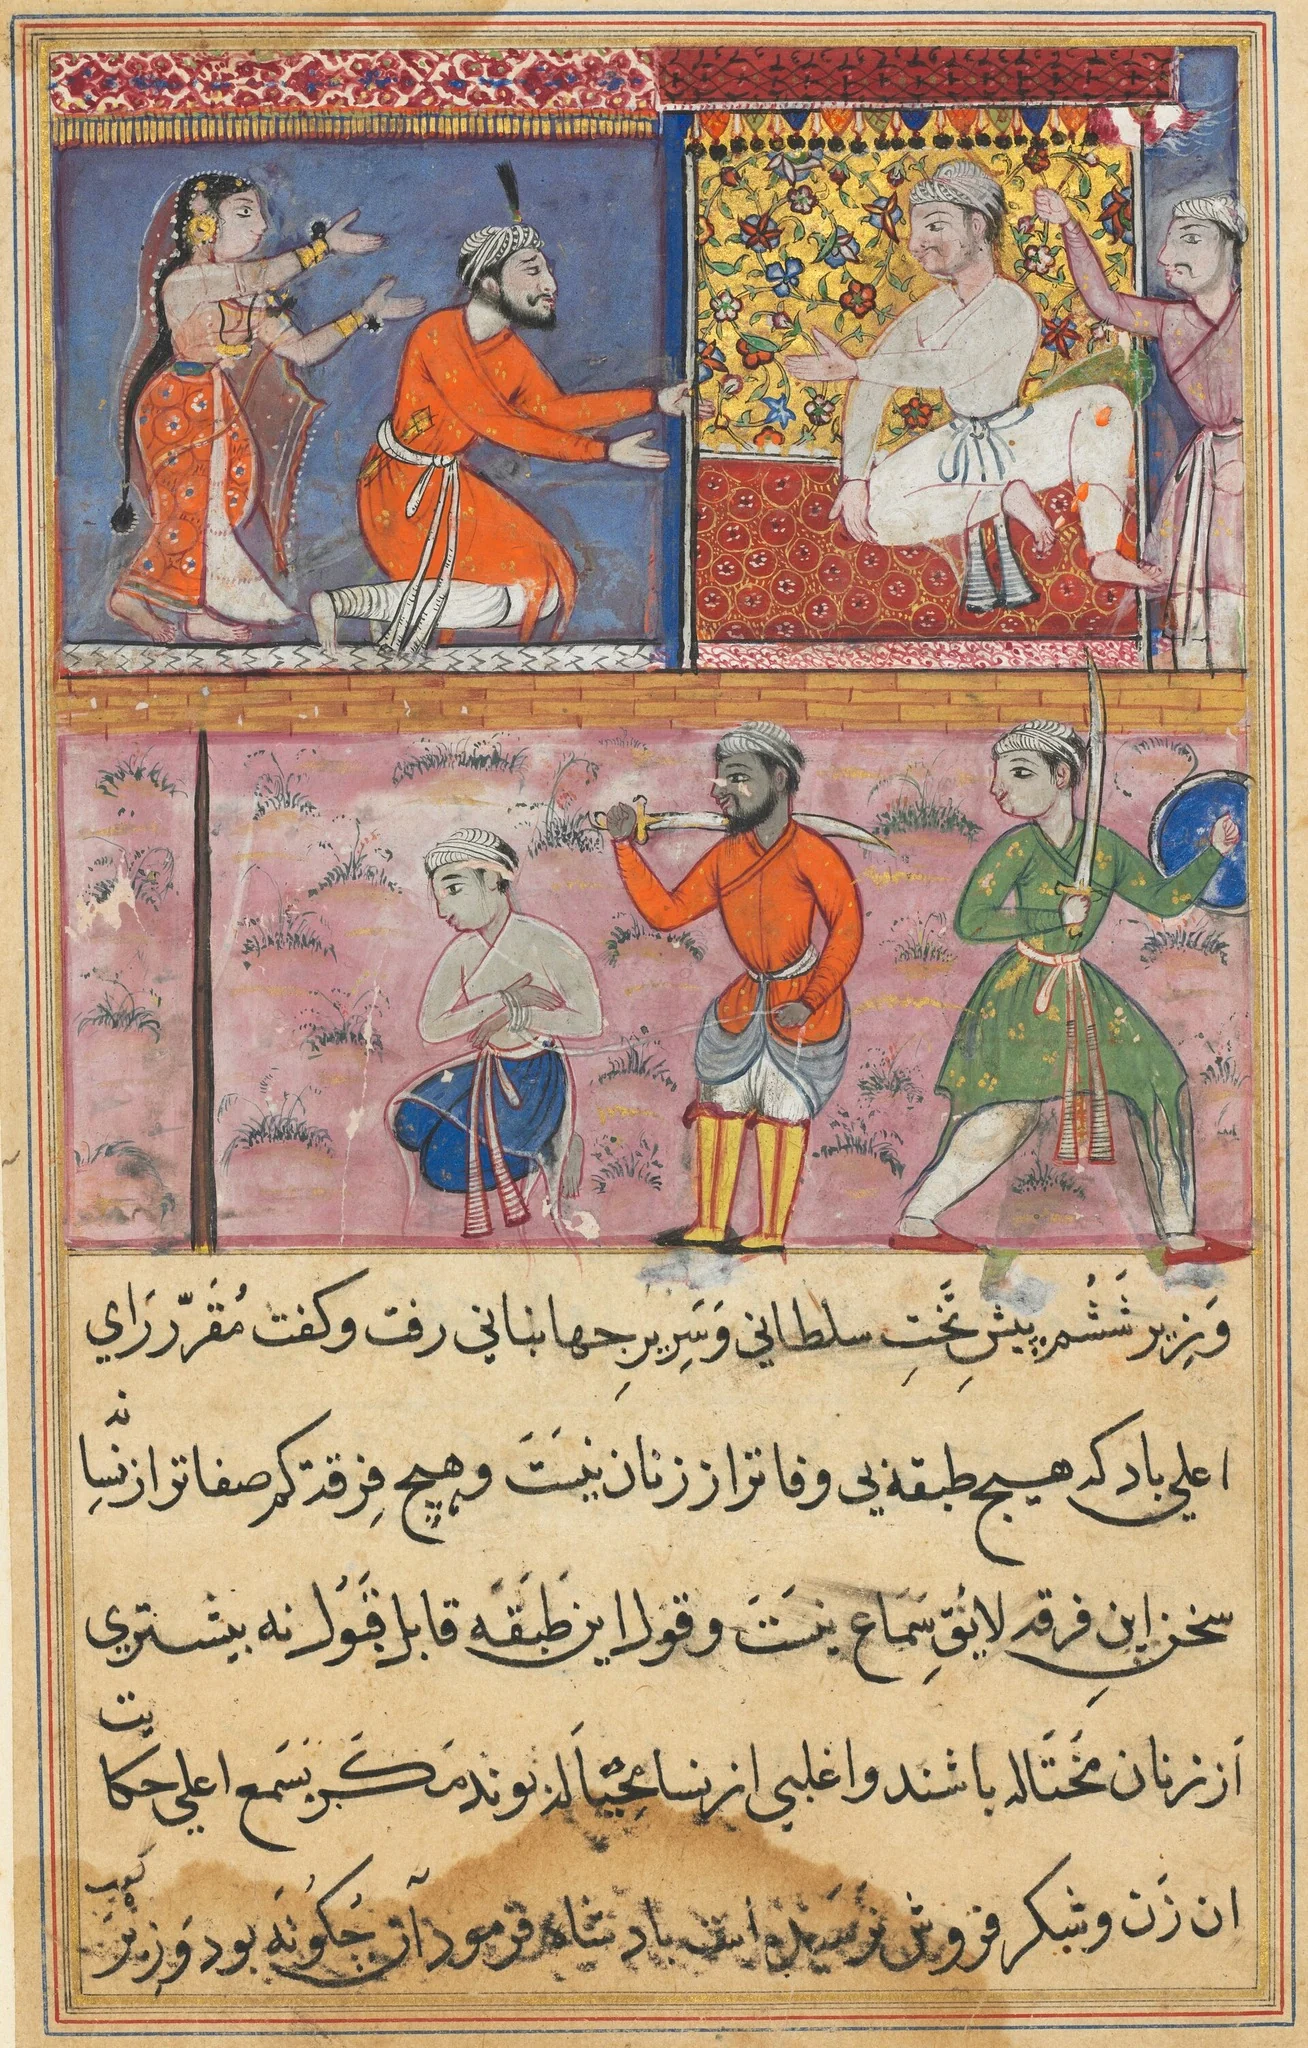 وَزِيرِ شَشُم پيشِ تَختِ سلطاني وَسَرِيرِ جهانباني رفت وكفت مُقَرّرِ رَاي
اعلي باد كه هيچ طبقه بي وفاتر از زنان نيَستَ وهيچ فِرقه كم صفاتر از نِسا نه
سخن اين فرقه لايُقِ سَمَاع نيستَ وقول اين طَبَقَه قابل قَبُول نه بيشتري
از زنان مُحتَاله باشند واغلبي از نسا مُحِيّاله بوند مَكَر بسَمع اعلي حكايت
ان زَن وشكر فروش نرسيده است بادشاه فرمود آن چُكُونَه بود وَزِير كفت